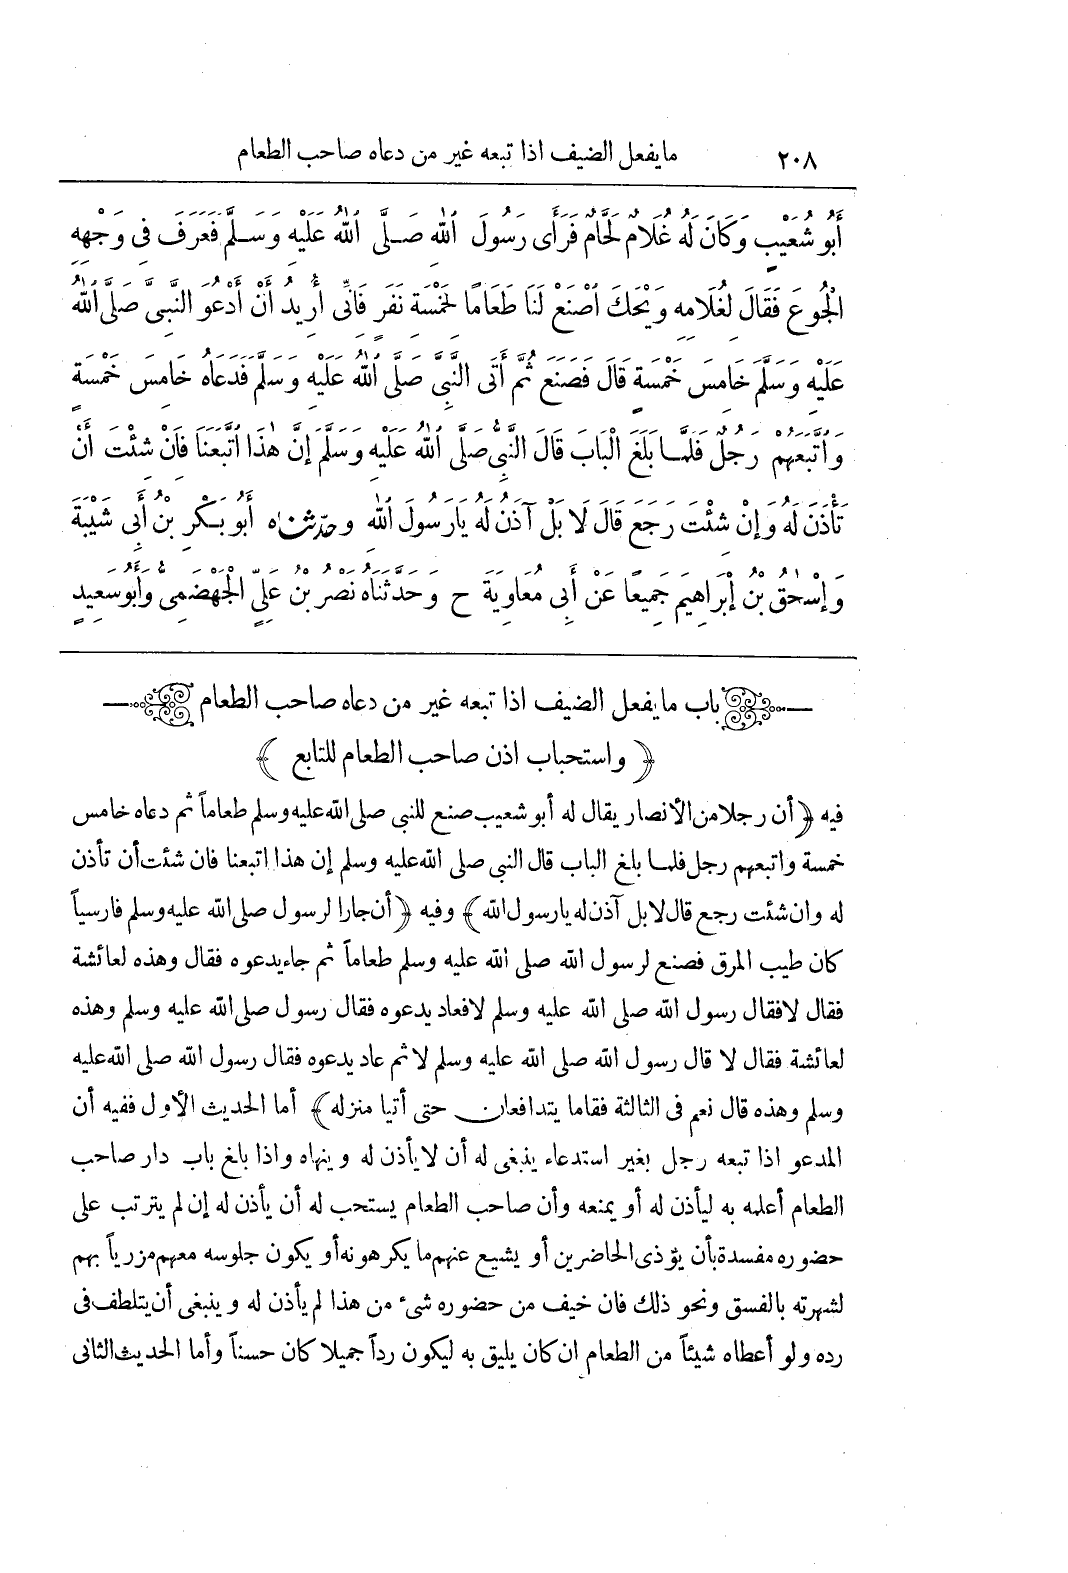 ٢٠٨ مايفعل الضيف اذا تبعه غير من دعاه صاحب الطعام
أَبُو شُعَيْبٍ وَكَانَ لَهُ غُلَامٌ لَحَّامٌ فَرَأَى رَسُولَ اللهِ صَلَّى اللهُ عَلَيْهِ وَسَلَّمَ فَعَرَفَ فِى وَجْهِهِ
الْجُوعَ فَقَالَ لِغُلَامِهِ وَيْحَكَ اصْنَعْ لَنَا طَعَامًا لِخَمْسَةِ نَفَرٍ فَإِنِّى أُرِيدُ أَنْ أَدْعُوَ النَّبِىَّ صَلَّى اللهُ
عَلَيْهِ وَسَلَّمَ خَامِسَ خَمْسَةٍ قَالَ فَصَنَعَ ثُمَّ أَتَى النَّبِىَّ صَلَّى اللهُ عَلَيْهِ وَسَلَّمَ فَدَعَاهُ خَامِسَ خَمْسَةٍ
وَاتَّبَعَهُمْ رَجُلٌ فَلَمَّا بَلَغَ الْبَابَ قَالَ النَّبِىُّ صَلَّى اللهُ عَلَيْهِ وَسَلَّمَ إِنَّ هٰذَا اتَّبَعَنَا فَإِنْ شِئْتَ أَنْ
تَأْذَنَ لَهُ وَإِنْ شِئْتَ رَجَعَ قَالَ لَا بَلْ آذَنُ لَهُ يَارَسُولَ اللهِ وحدثناه أَبُو بَكْرِ بْنُ أَبِى شَيْبَةَ
وَإِسْحٰقُ بْنُ إِبْرَاهِيمَ جَمِيعًا عَنْ أَبِى مُعَاوِيَةَ ح وَحَدَّثَنَاهُ نَصْرُ بْنُ عَلِىٍّ الْجَهْضَمِىُّ وَأَبُو سَعِيدٍ
باب مايفعل الضيف اذا تبعه غير من دعاه صاحب الطعام
﴿ واستحباب اذن صاحب الطعام للتابع ﴾
فيه ﴿أن رجلا من الأنصار يقال له أبو شعيب صنع للنبى صلى الله عليه وسلم طعاماً ثم دعاه خامس
خمسة واتبعهم رجل فلما بلغ الباب قال النبى صلى الله عليه وسلم إن هذا اتبعنا فان شئت أن تأذن
له وان شئت رجع قال لا بل آذن له يارسول الله﴾ وفيه ﴿أن جارا لرسول صلى الله عليه وسلم فارسياً
كان طيب المرق فصنع لرسول الله صلى الله عليه وسلم طعاماً ثم جاء يدعوه فقال وهذه لعائشة
فقال لا فقال رسول الله صلى الله عليه وسلم لا فعاد يدعوه فقال رسول صلى الله عليه وسلم وهذه
لعائشة فقال لا قال رسول الله صلى الله عليه وسلم لا ثم عاد يدعوه فقال رسول الله صلى الله عليه
وسلم وهذه قال نعم فى الثالثة فقاما يتدافعان حتى أتيا منزله﴾ أما الحديث الأول ففيه أن
المدعو اذا تبعه رجل بغير استدعاء ينبغى له أن لا يأذن له وينهاه واذا بلغ باب دار صاحب
الطعام أعلمه به ليأذن له أو يمنعه وأن صاحب الطعام يستحب له أن يأذن له إن لم يترتب على
حضوره مفسدة بأن يؤذى الحاضرين أو يشيع عنهم ما يكرهونه أو يكون جلوسه معهم مزرياً بهم
لشهرته بالفسق ونحو ذلك فان خيف من حضوره شىء من هذا لم يأذن له وينبغى أن يتلطف فى
رده ولو أعطاه شيئاً من الطعام ان كان يليق به ليكون رداً جميلا كان حسناً وأما الحديث الثانى